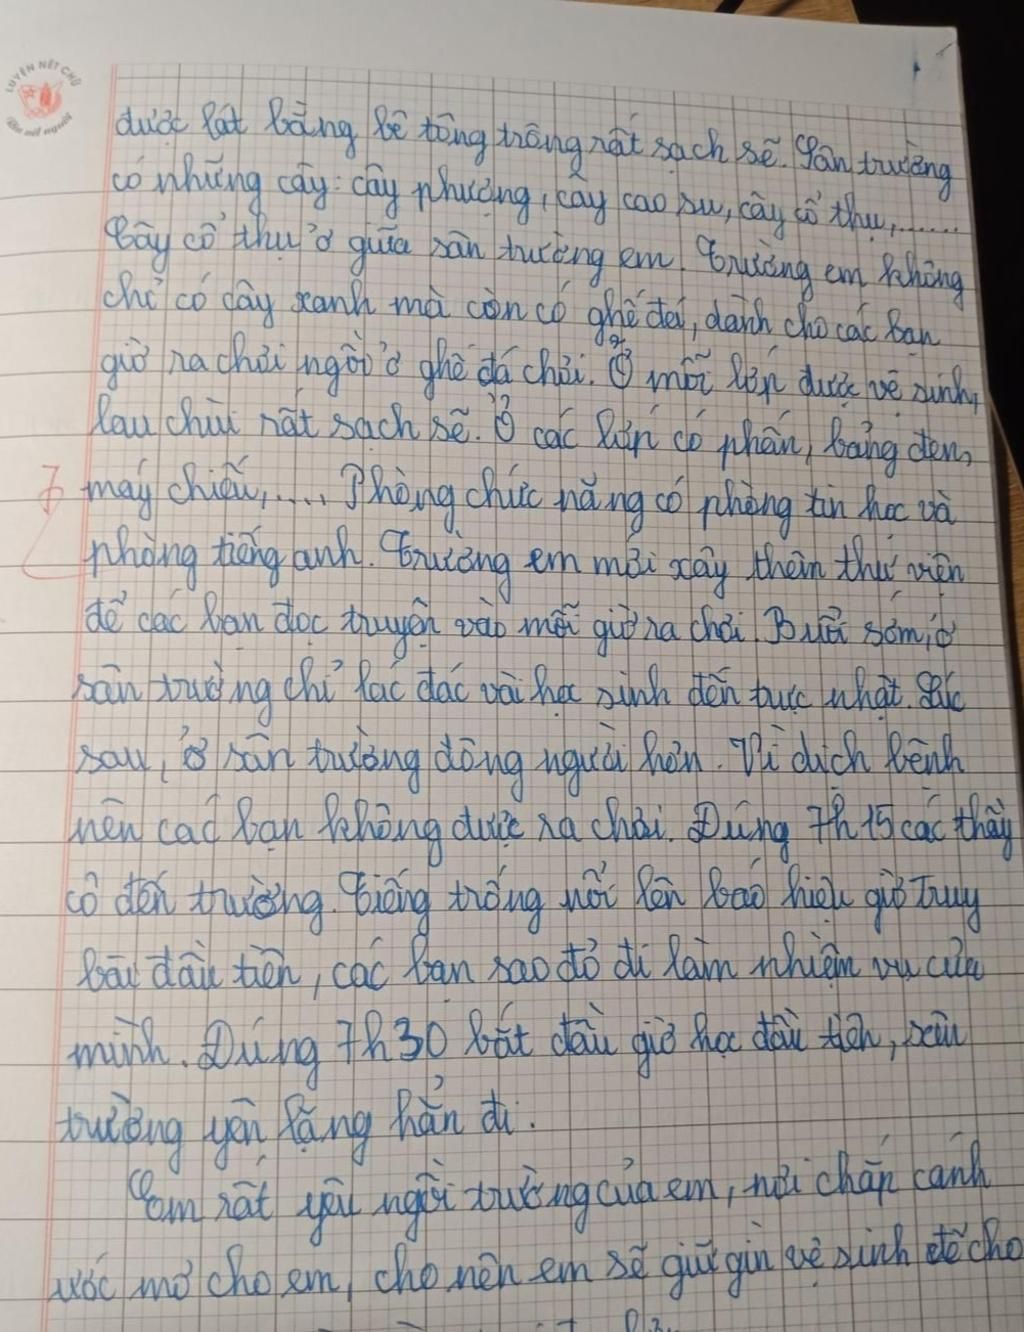 LUYỆN NÉT CHỮ
Rèn nết người
được lát bằng bê tông trông rất sạch sẽ. Sân trường
có những cây: cây phượng, cây cao su, cây cổ thụ,......
Cây cổ thụ ở giữa sân trường em. Trường em không
chỉ có cây xanh mà còn có ghế đá, dành cho các bạn
giờ ra chơi ngồi ở ghế đá chơi. Ở mỗi lớp được vệ sinh,
lau chùi rất sạch sẽ. Ở các lớp có phấn, bảng đen,
máy chiếu,.... Phòng chức năng có phòng tin học và
phòng tiếng anh. Trường em mới xây thêm thư viện
để các bạn đọc truyện vào mỗi giờ ra chơi. Buổi sớm, ở
sân trường chỉ lác đác vài học sinh đến trực nhật. Lúc
sau, ở sân trường đông người hơn. Vì dịch bệnh
nên các bạn không được ra chơi. Đúng 7h15 các thầy
cô đến trường. Tiếng trống nổi lên báo hiệu giờ truy
bài đầu tiên, các bạn sao đỏ đi làm nhiệm vụ của
mình. Đúng 7h30 bắt đầu giờ học đầu tiên, sân
trường yên lặng hẳn đi.
Em rất yêu ngôi trường của em, nơi chắp cánh
ước mơ cho em, cho nên em sẽ giữ gìn vệ sinh để cho